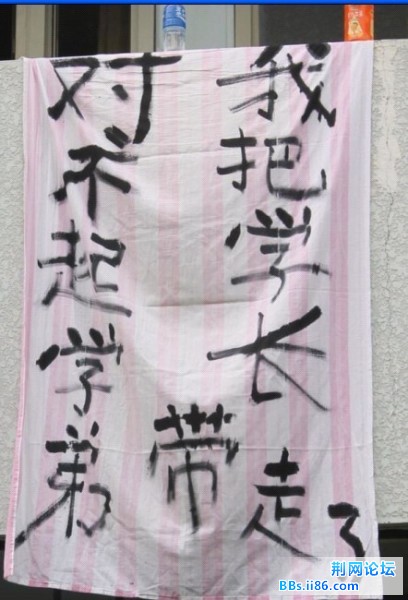 对不起学弟
我把学长
带走了
荆网论坛
BBs.ii86.com